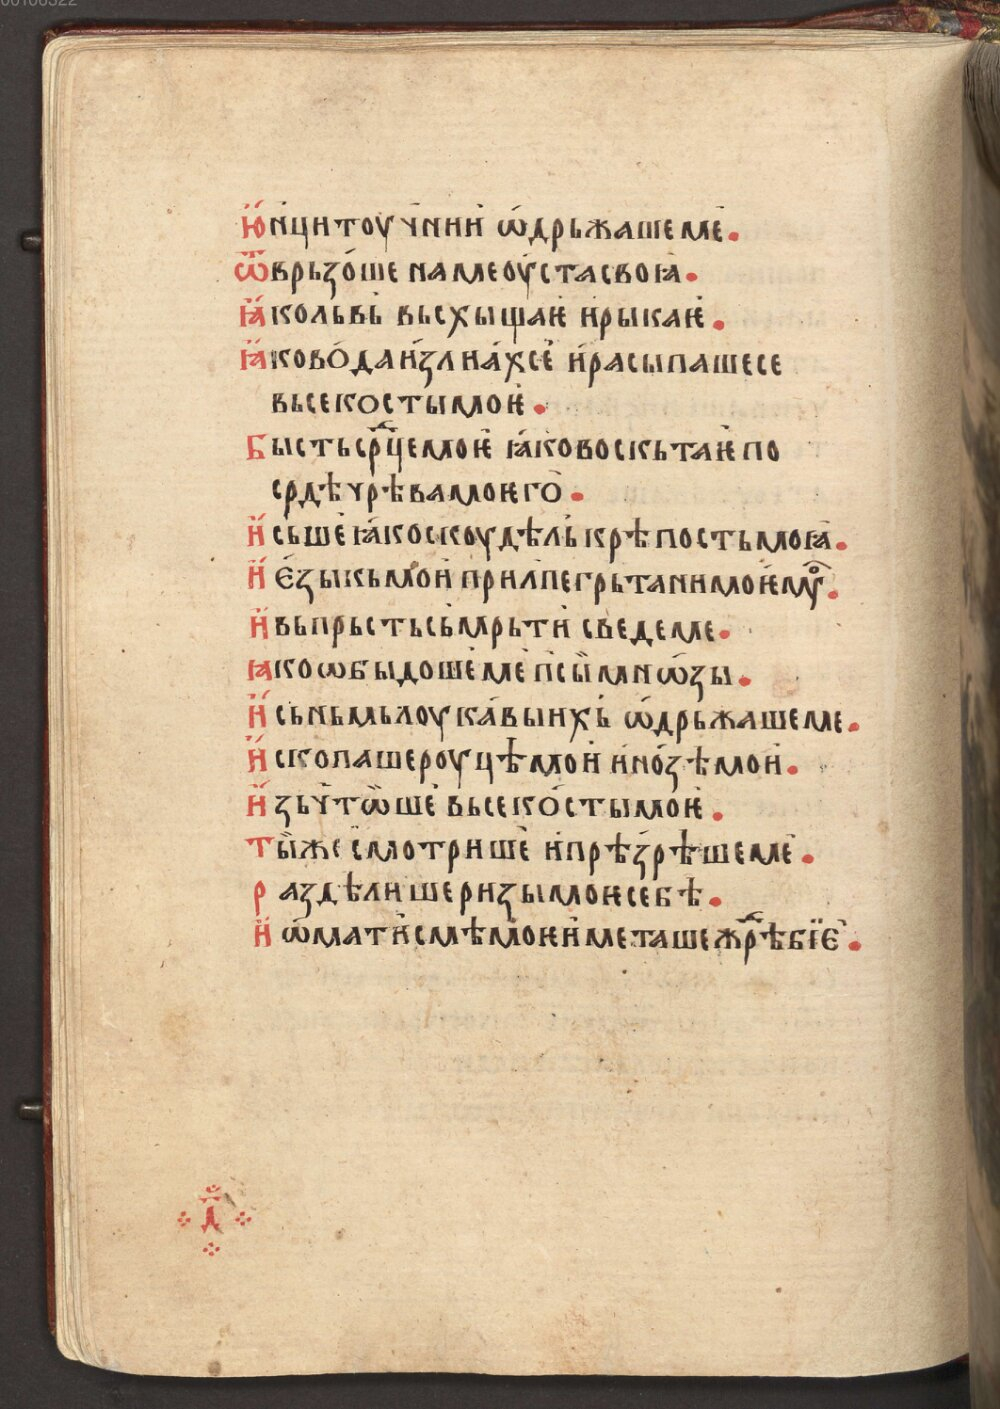 00106322
Ю҆нци тоучнии ѡ҆дрьжаше ме.
Ѿврьзо́ше на ме оу҆ста своꙗ.
Ꙗ҆ко львь вьсхыщаѥ и҆ рыкаѥ.
Ꙗ҆ко вода и҆злиꙗ́хсе и҆ расыпаше се
вьсе кости моѥ.
Бысть срⷣце моѥ ꙗ҆ко воскь таѥ по
срдѣ чрѣва моѥго.
И҆сьше ꙗ҆ко скоудѣль крѣпость моꙗ.
И҆ ѥзыкь мои прилпе грьтани моѥмꙋ.
И҆ вь прьсть сьмрьти сведе ме.
Ꙗко ѡбыдоше ме пси мнѡзы.
И҆ сьньмь лоукавыихь ѡ҆дрьжаше ме.
И҆скопаше роуцѣ мои и҆ нозѣ мои.
И҆зьчтѡше вьсе кости моѥ.
Ты же смотрише и҆ прѣзрѣше ме.
Раздѣлише ризы моѥ себѣ.
И҆ ѡ҆ матисмѣ моѥи меташе жрⷣѣбїе.
Д